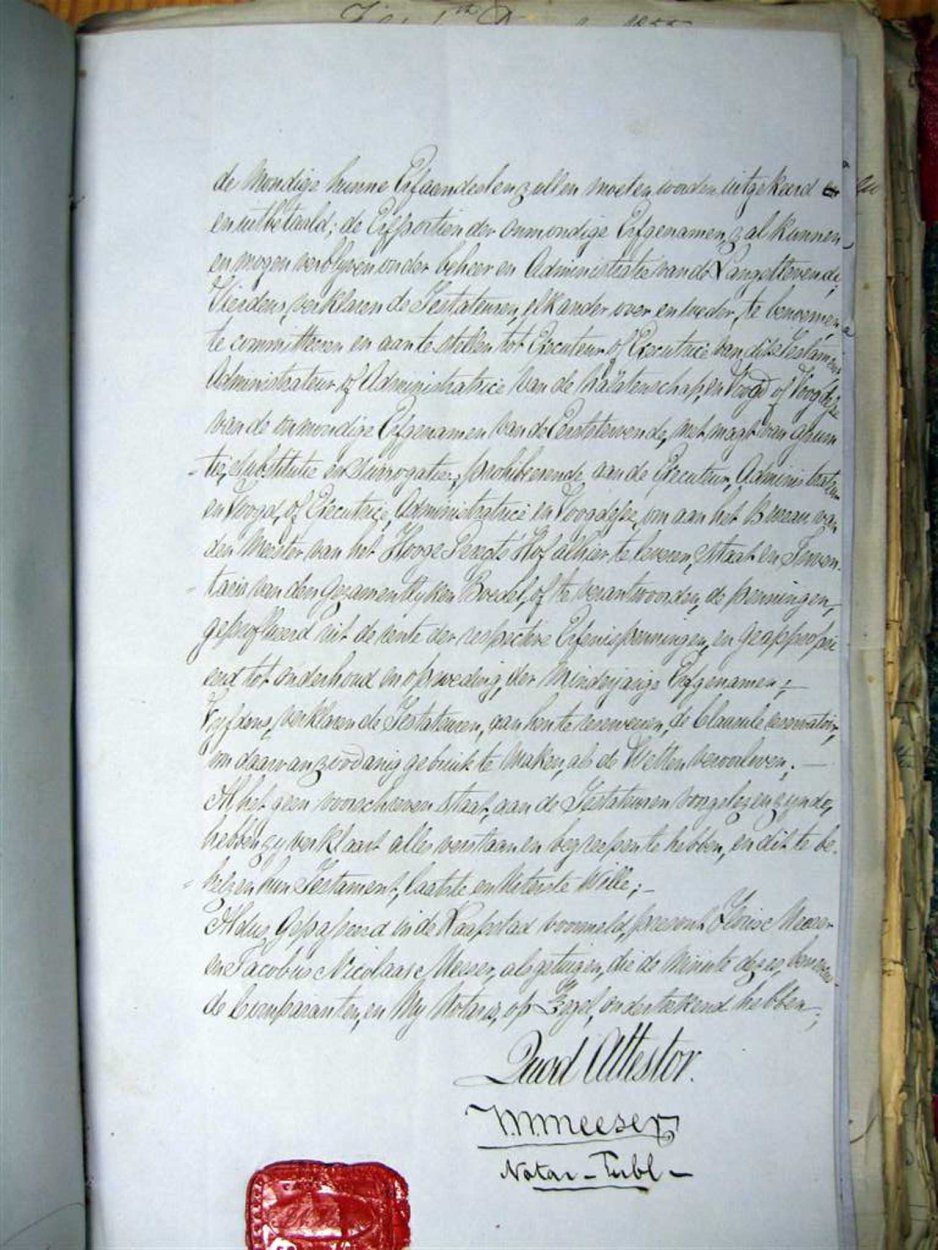 de Mondige hunne Erfaandeelen zullen moeten worden uitgekeerd
en uitbetaald; de Erfportien der onmondige Erfgenamen, zal kunnen
en mogen verblyven onder beheer en Administratie van de Langstlevende;
Vierdens, verklaren de Testateuren, elkander over en weder, te benoemen
te committeeren en aan te stellen tot Executeur of Executrice van dit Testament
Administrateur of Administratrice van de nalatenschap, en Voogd of Voogdesse
van de onmondige Erfgenamen van de Eerststervende, met magt van assum
tie, substitutie en surrogatie; prohibeerende aan de Executeur, Administrateur
en Voogd, of Executrice, Administratrice en Voogdesse, om aan het Bureau van
den Meester van het Hooge Geregts Hof alhier te leveren, Staat en Inven-
taris van den gezamentlyken Boedel, of te verantwoorden, de penningen,
geprofiteerd uit de rente der respective Erfenispenningen, en geapproprie
erd tot onderhoud en opvoeding, der Minderjarige Erfgenamen;-
Vyfdens, verklaren de Testateuren, aan hen te reserveren, de Clausule reservatoir,
om daarvan zoodanig gebruik te maken, als de Wetten veroorloven;-
Al het geen voorschreven staat, aan de Testateuren voorgelezen zynde,
hebben zy verklaart alles verstaan en begreepen te hebben, en dit te be-
helzen hun Testament, laatste en Uiterste Wille;-
Aldus Gepasseerd in de Kaapstad voormeld, present Meeser
en Jacobus Nicolaas Meeser, als getuigen, die de Minute dezes, benevens
de Comparanten, en My Notaris, op Zegel, onderteekend hebben-;
Quod Attestor.
Meeser
Notar- Publ-